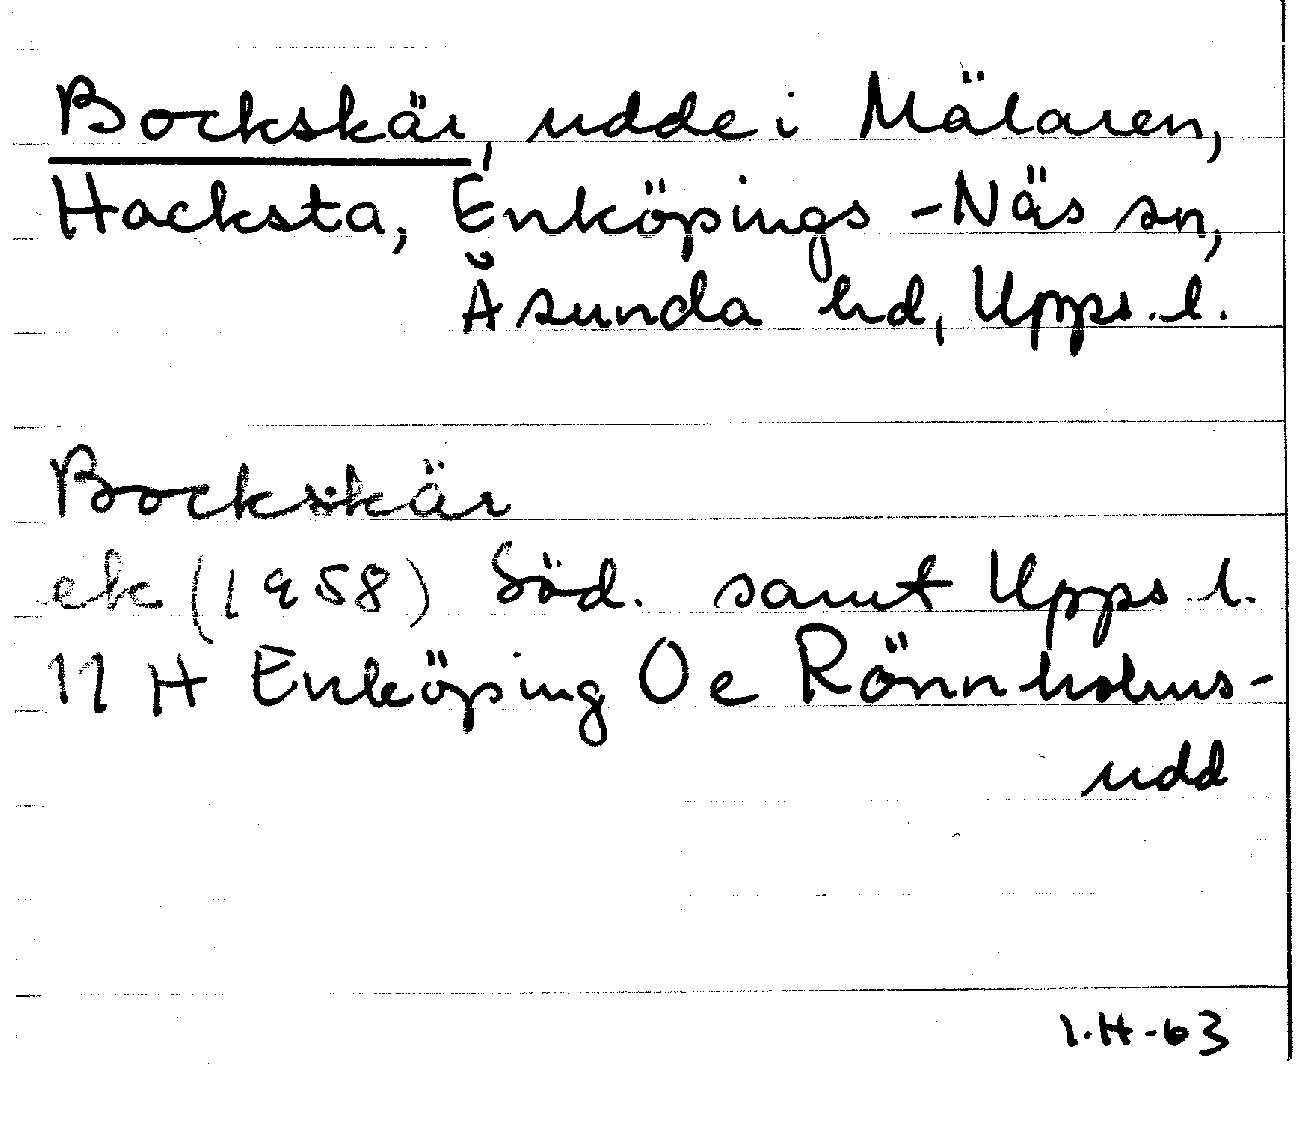 Bockskär, udde i Mälaren,
Hacksta, Enköpings-Näs sn,
Åsunda hd, Upps. l.
Bockskär
ek (1958) Söd. samt Upps l.
11 H Enköping Oe Rönnholms-
udd
I.H-63